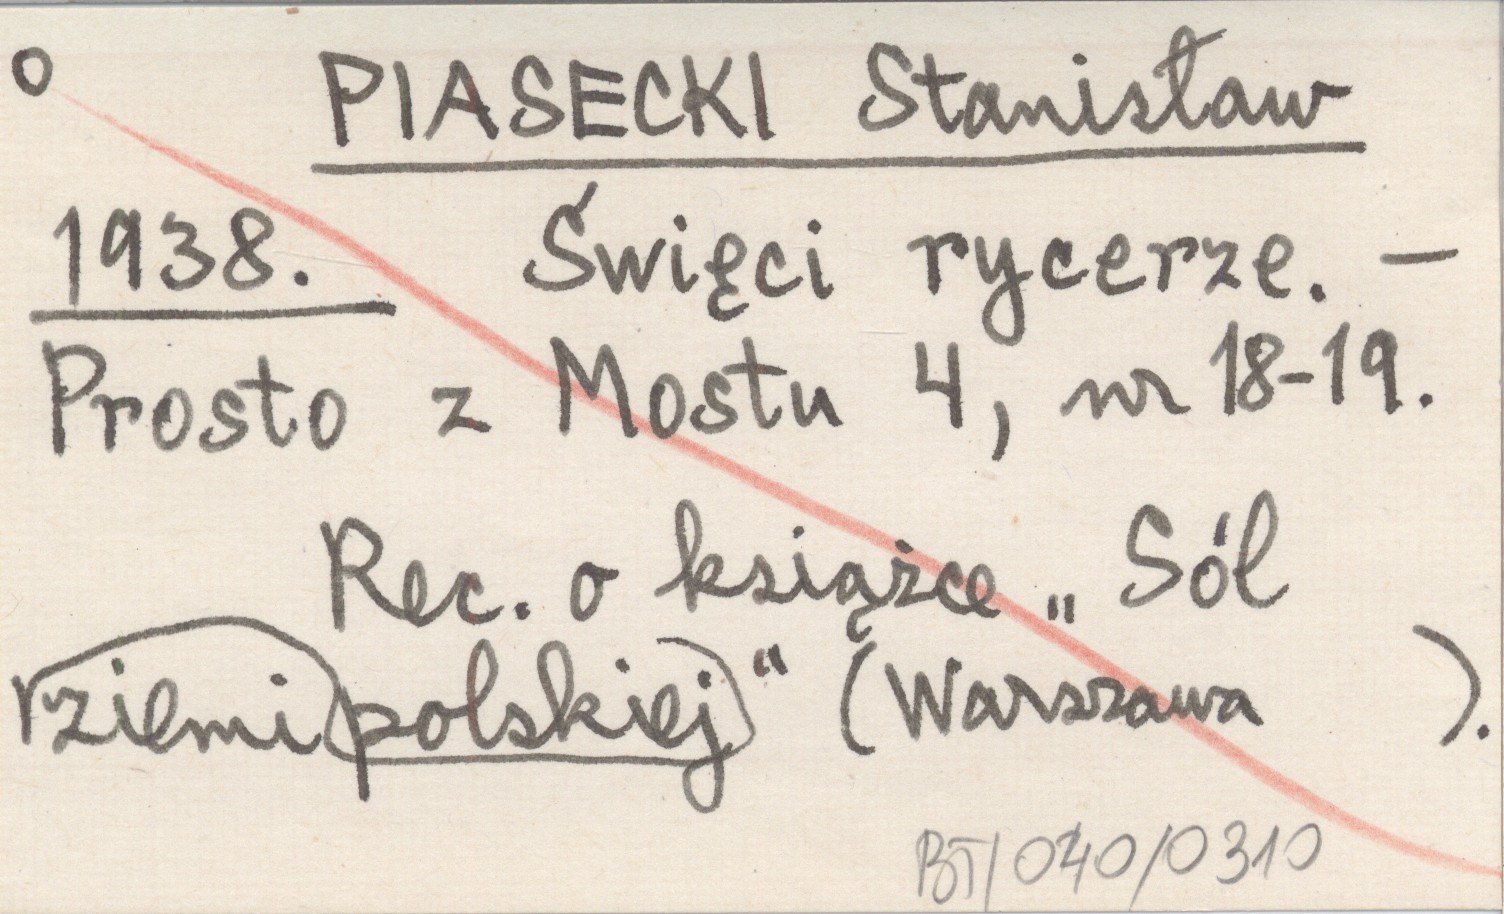 o PIASECKI Stanisław
1938. Święci rycerze. –
Prosto z Mostu 4, nr 18-19.
Rec. o książce „Sól
ziemi polskiej“ (Warszawa ).
BT/040/0310